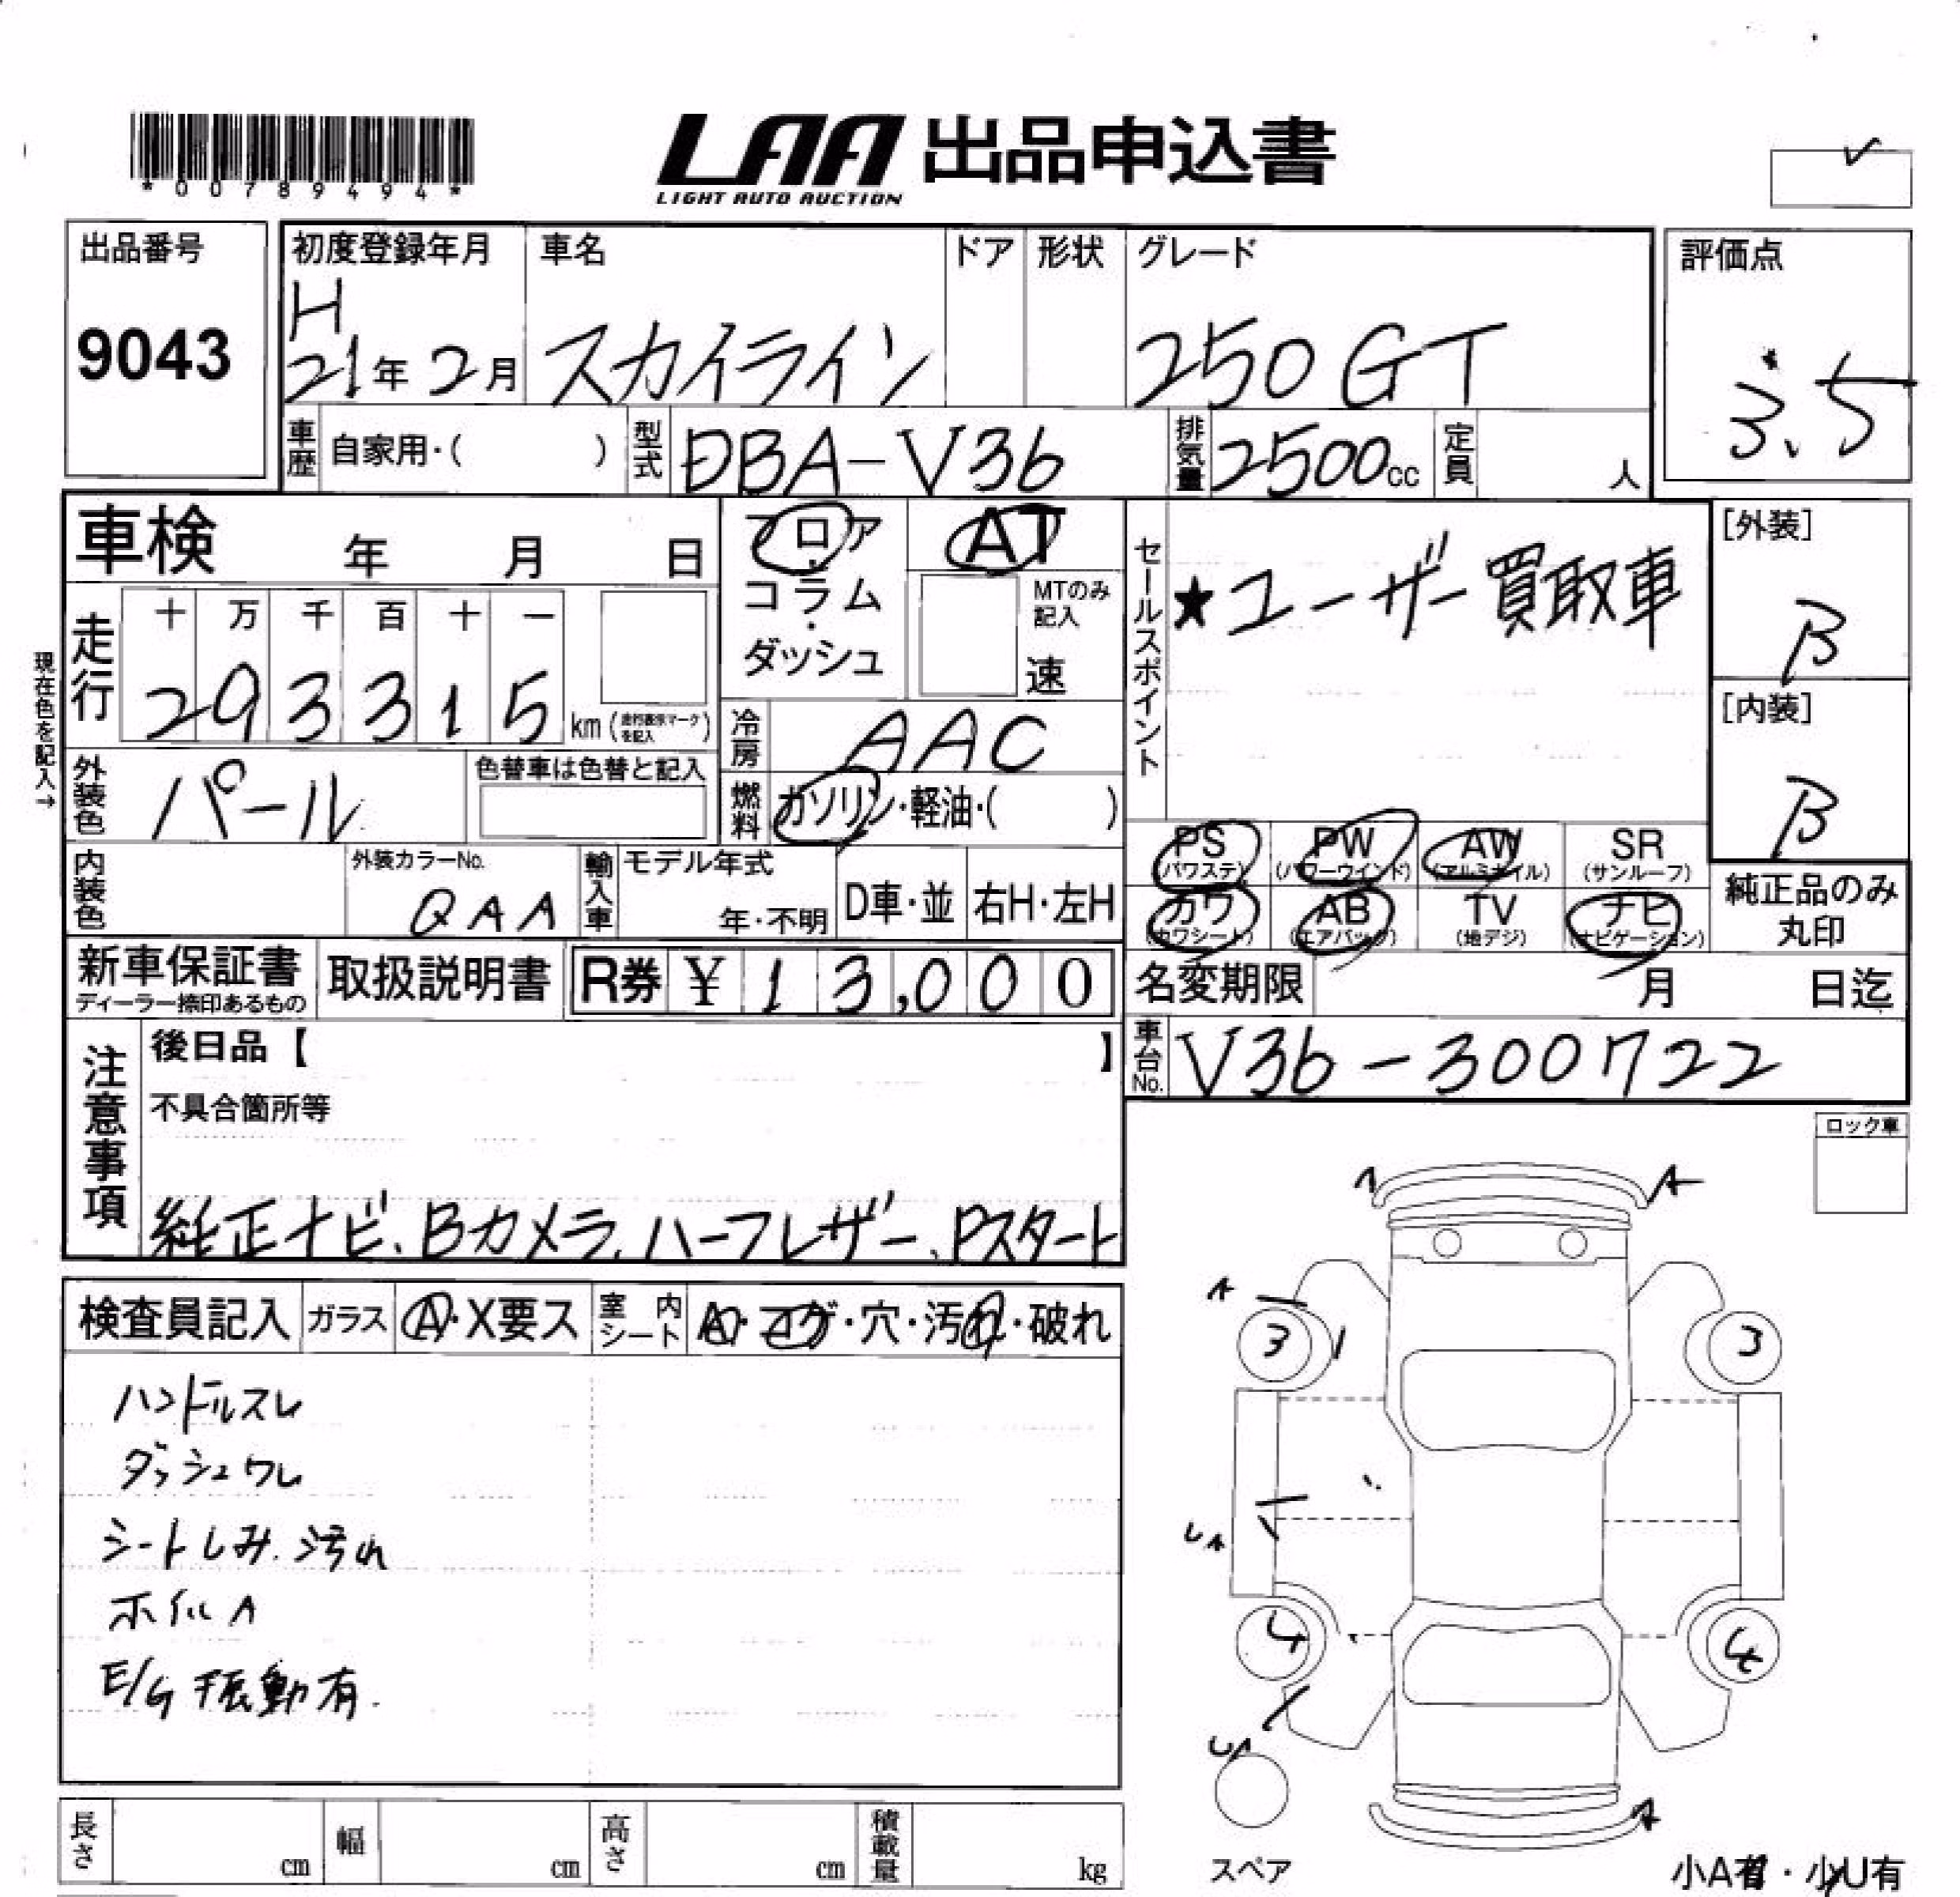 *00789494*
LAA 出品申込書
LIGHT AUTO AUCTION
出品番号
9043
初度登録年月
H
21年2月
車名
スカイライン
ドア
形状
グレード
250GT
評価点
3.5
車歴
自家用・( )
型式
DBA-V36
排気量
2500cc
定員
人
車検 年 月 日
フロア
コラム
・
ダッシュ
AT
MTのみ
記入
速
セールスポイント
★ユーザー買取車
[外装]
B
[内装]
B
現在色を記入→
走行
十 万 千 百 十 一
2 9 3 3 1 5
km(走行表示マークを記入)
冷房
AAC
外装色
パール
色替車は色替と記入
燃料
ガソリン・軽油・( )
PS
(パワステ)
PW
(パワーウインド)
AW
(アルミホイル)
SR
(サンルーフ)
カワ
(カワシート)
AB
(エアバック)
TV
(地デジ)
ナビ
(ナビゲーション)
純正品のみ
丸印
内装色
外装カラーNo.
QAA
輸入車
モデル年式
年・不明
D車・並
右H・左H
新車保証書
ディーラー捺印あるもの
取扱説明書
R券 ¥ 13,000
名変期限 月 日迄
車台No.
V36-300722
注意事項
後日品【 】
不具合箇所等
純正ナビ、Bカメラ、ハーフレザー、Pスタート
ロック車
検査員記入
ガラス
A・X要ス
室内
シート
A・コゲ・穴・汚れ・破れ
ハンドルスレ
ダッシュワレ
シートしみ、汚れ
ホイルA
E/G振動有.
A
A
A
3
3
UA
4
4
UA
A
スペア
長さ
cm
幅
cm
高さ
cm
積載量
kg
小A有・小U有